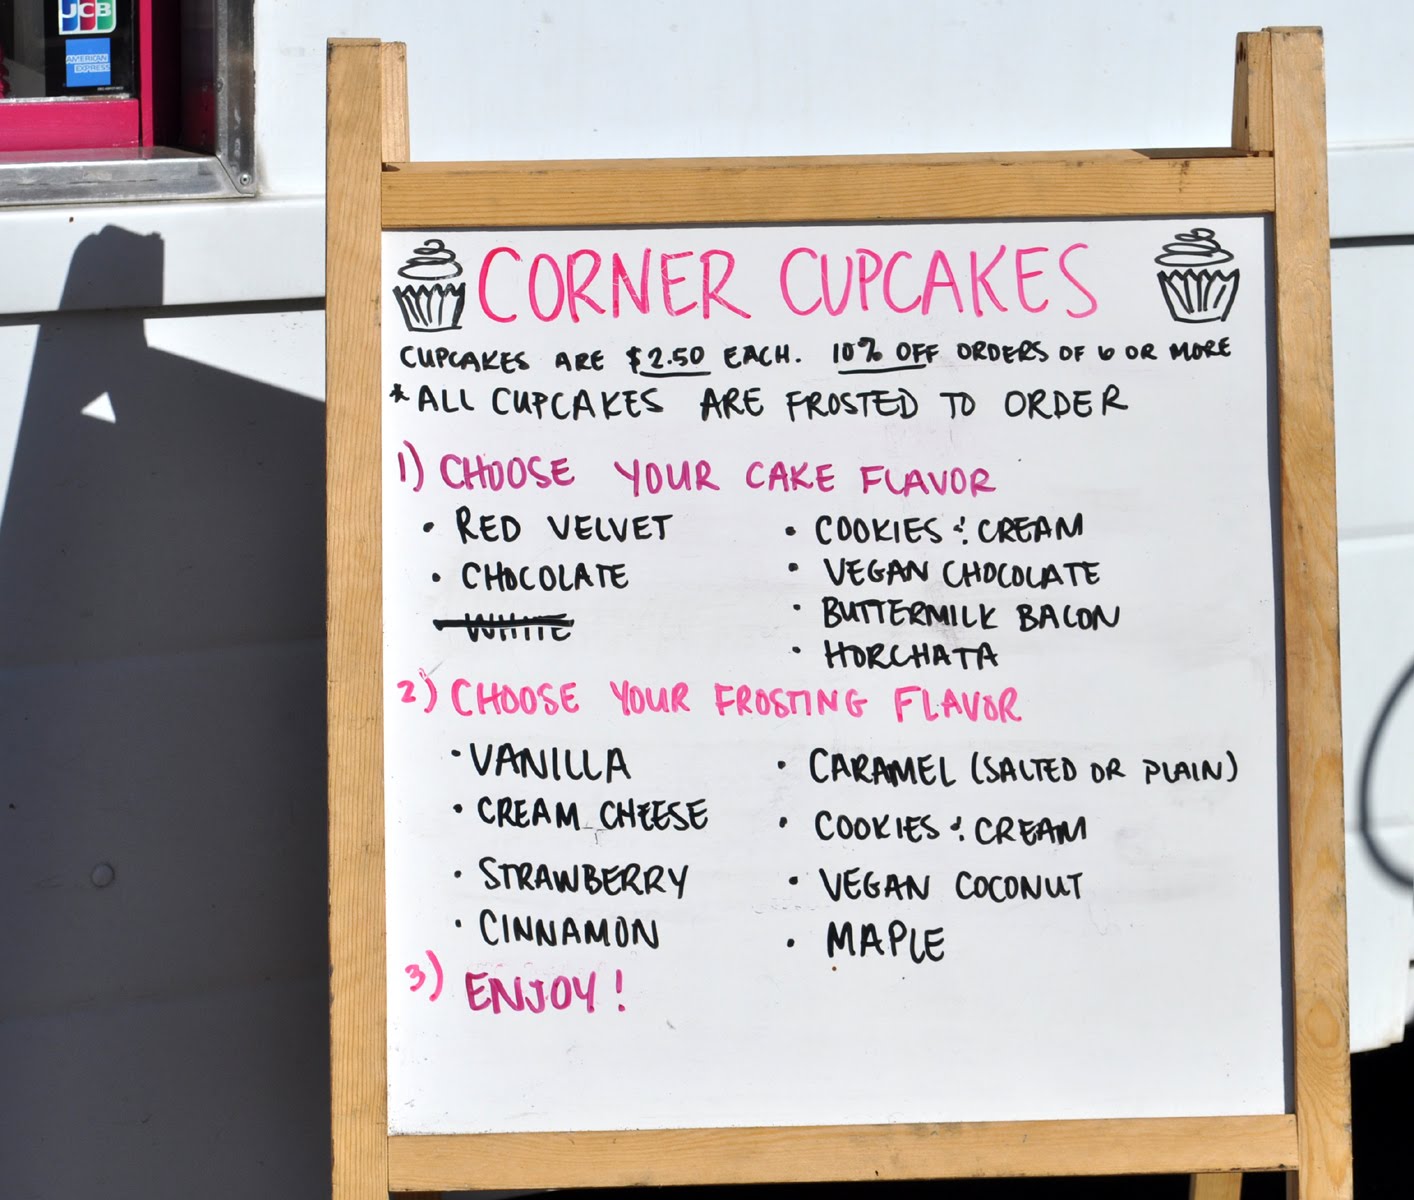 JCB
AMERICAN
EXPRESS
CORNER CUPCAKES
CUPCAKES ARE $2.50 EACH. 10% OFF ORDERS OF 6 OR MORE
*ALL CUPCAKES ARE FROSTED TO ORDER
1) CHOOSE YOUR CAKE FLAVOR
• RED VELVET
• CHOCOLATE
WHITE
• COOKIES & CREAM
• VEGAN CHOCOLATE
• BUTTERMILK BACON
• HORCHATA
2) CHOOSE YOUR FROSTING FLAVOR
• VANILLA
• CREAM CHEESE
• STRAWBERRY
• CINNAMON
• CARAMEL (SALTED OR PLAIN)
• COOKIES & CREAM
• VEGAN COCONUT
• MAPLE
3) ENJOY!